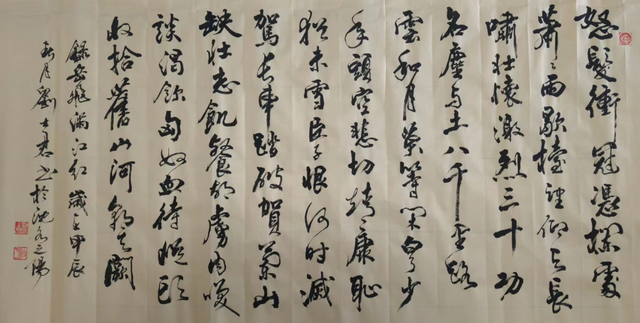 怒髮衝冠憑欄處
蕭〻雨歇擡望眼仰天長
嘯壯懷激烈三十功
名塵與土八千里路
雲和月莫等閒白了少
年頭空悲切靖康恥
猶未雪臣子恨何時滅
駕長車踏破賀蘭山
缺壯志飢餐胡虜肉笑
談渴飲匈奴血待從頭
收拾舊山河朝天闕
錄岳飛滿江紅 歲在甲辰
月劉士君書於沈水之陽